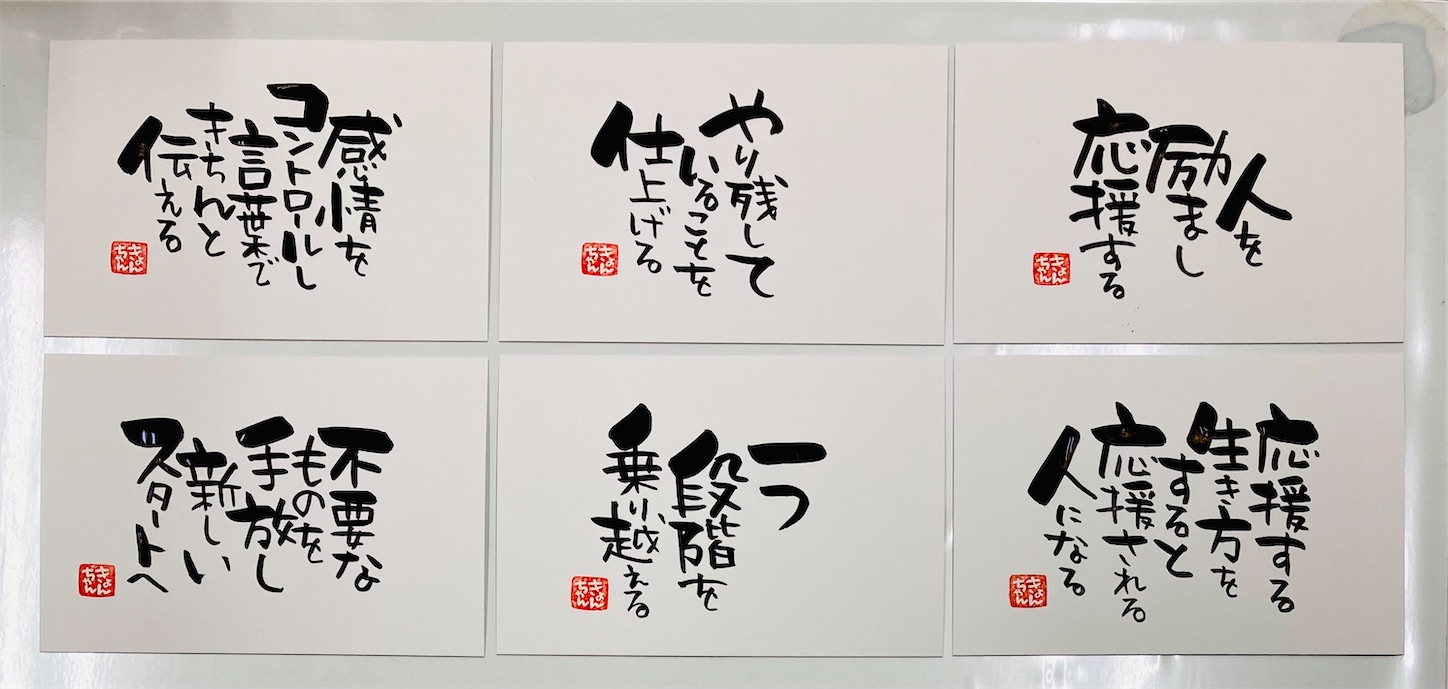 感情を
コントロールし
言葉で
きちんと
伝える
きょん
ちゃん
やり残して
いることを
仕上げる
きょん
ちゃん
人を
励まし
応援する
きょん
ちゃん
不要な
ものを
手放し
新しい
スタートへ
きょん
ちゃん
一つ
段階を
乗り越える
きょん
ちゃん
応援する
生き方を
すると
応援される
人になる
きょん
ちゃん